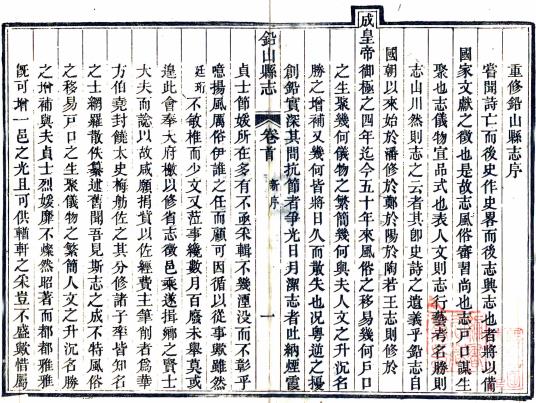 重修鉛山縣志序
嘗聞詩亡而後史作史畧而後志興志也者將以備
國家文獻之徵也是故志風俗審習尚也志戶口謀生
聚也志儀物宜品式也表人文則志行藝考名勝則
志山川然則志之云者其卽史詩之遺義乎鉛志自
國朝以來始於潘修於鄭於陽於陶若王志則修於
成皇帝御極之四年迄今五十年來風俗之移易幾何戶口
之生聚幾何儀物之繁簡幾何與夫人文之升沉名
勝之增補又幾何皆將日久而散失也況粵逆之擾
創鉛實深其間抗節者爭光日月潔志者吐納煙霞
鉛山縣志 卷首 新序 一
貞士節媛所在多有不亟采輯不幾湮沒而不彰乎
噫揚風厲俗伊誰之任而顧可因循以從事歟雖然
廷珩不敏椎而少文又蒞事幾數月百廢未舉莫或
遑此會奉大府檄以修省志徵邑乘遂揖鄉之賢士
大夫而諗以故咸願捐貲以佐經費主筆削者爲華
方伯堯封饒太史梅舫佐之其分修諸子率皆知名
之士網羅散佚纂述舊聞吾見斯志之成不特風俗
之移易戶口之生聚儀物之繁簡人文之升沉名勝
之增補與夫貞士烈媛靡不燦然昭著而都都雅雅
旣可增一邑之光且可供輶軒之采豈不盛歟惜屬